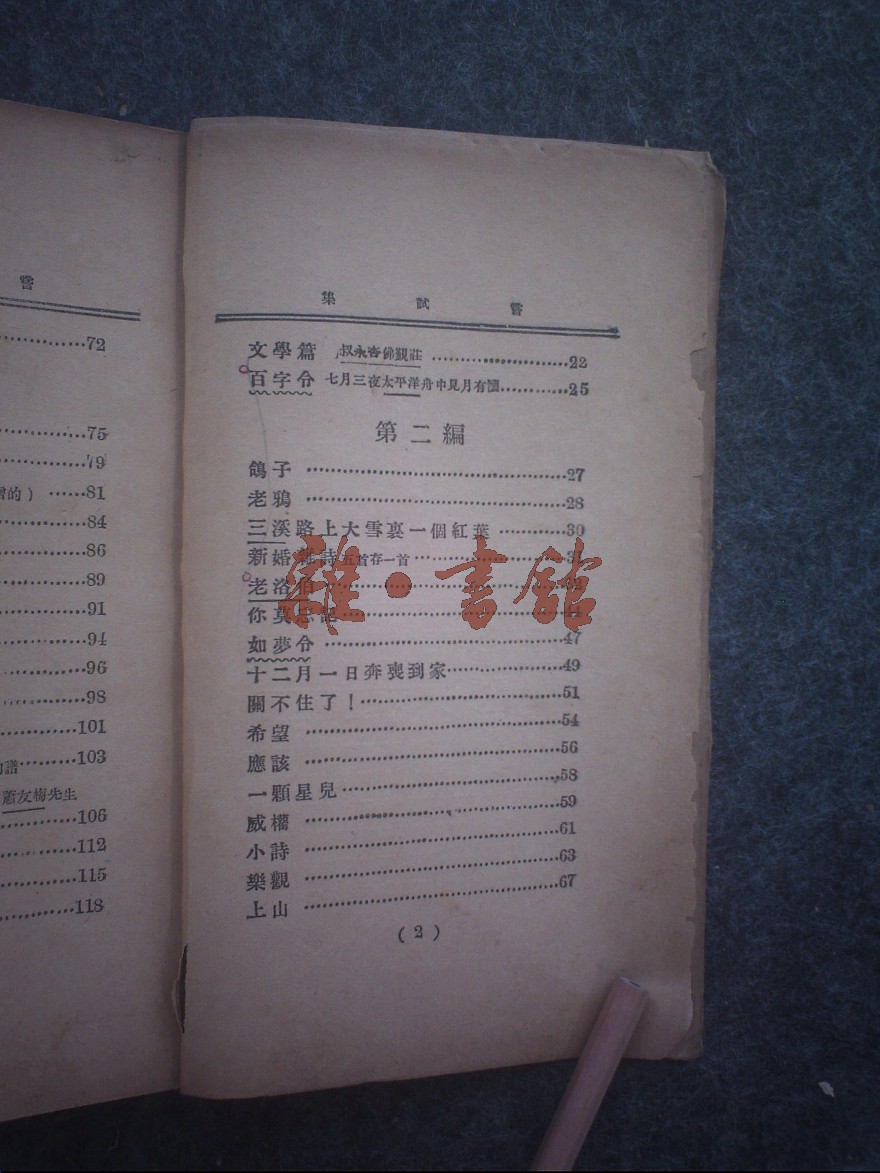 嘗
72
75
79
的） 81
84
86
89
91
94
96
98
101
譜 103
蕭友梅先生
106
112
115
118
集 試 嘗
文學篇 叔永杏佛覲莊 22
百字令 七月三夜太平洋舟中見月有懷 25
第二編
鴿子 27
老鴉 28
三溪路上大雪裏一個紅葉 30
新婚雜詩五首存一首 31
老洛伯 32
你莫忘記 44
如夢令 47
十二月一日奔喪到家 49
關不住了！ 51
希望 54
應該 56
一顆星兒 58
威權 59
小詩 61
樂觀 63
上山 67
(2)
雜·書館